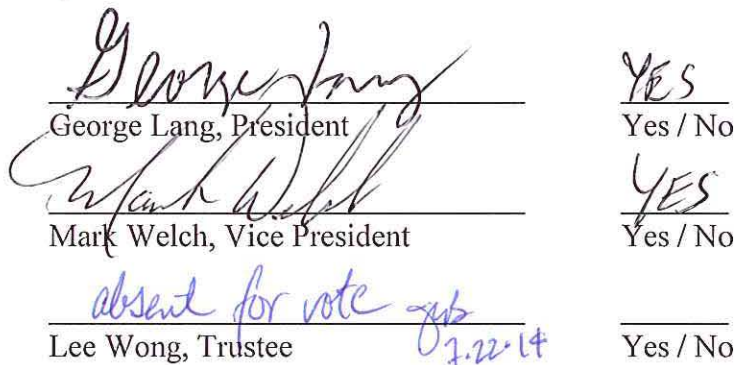 George Lang YES
George Lang, President Yes / No
Mark Welch YES
Mark Welch, Vice President Yes / No
absent for vote
7.22.14
Lee Wong, Trustee Yes / No